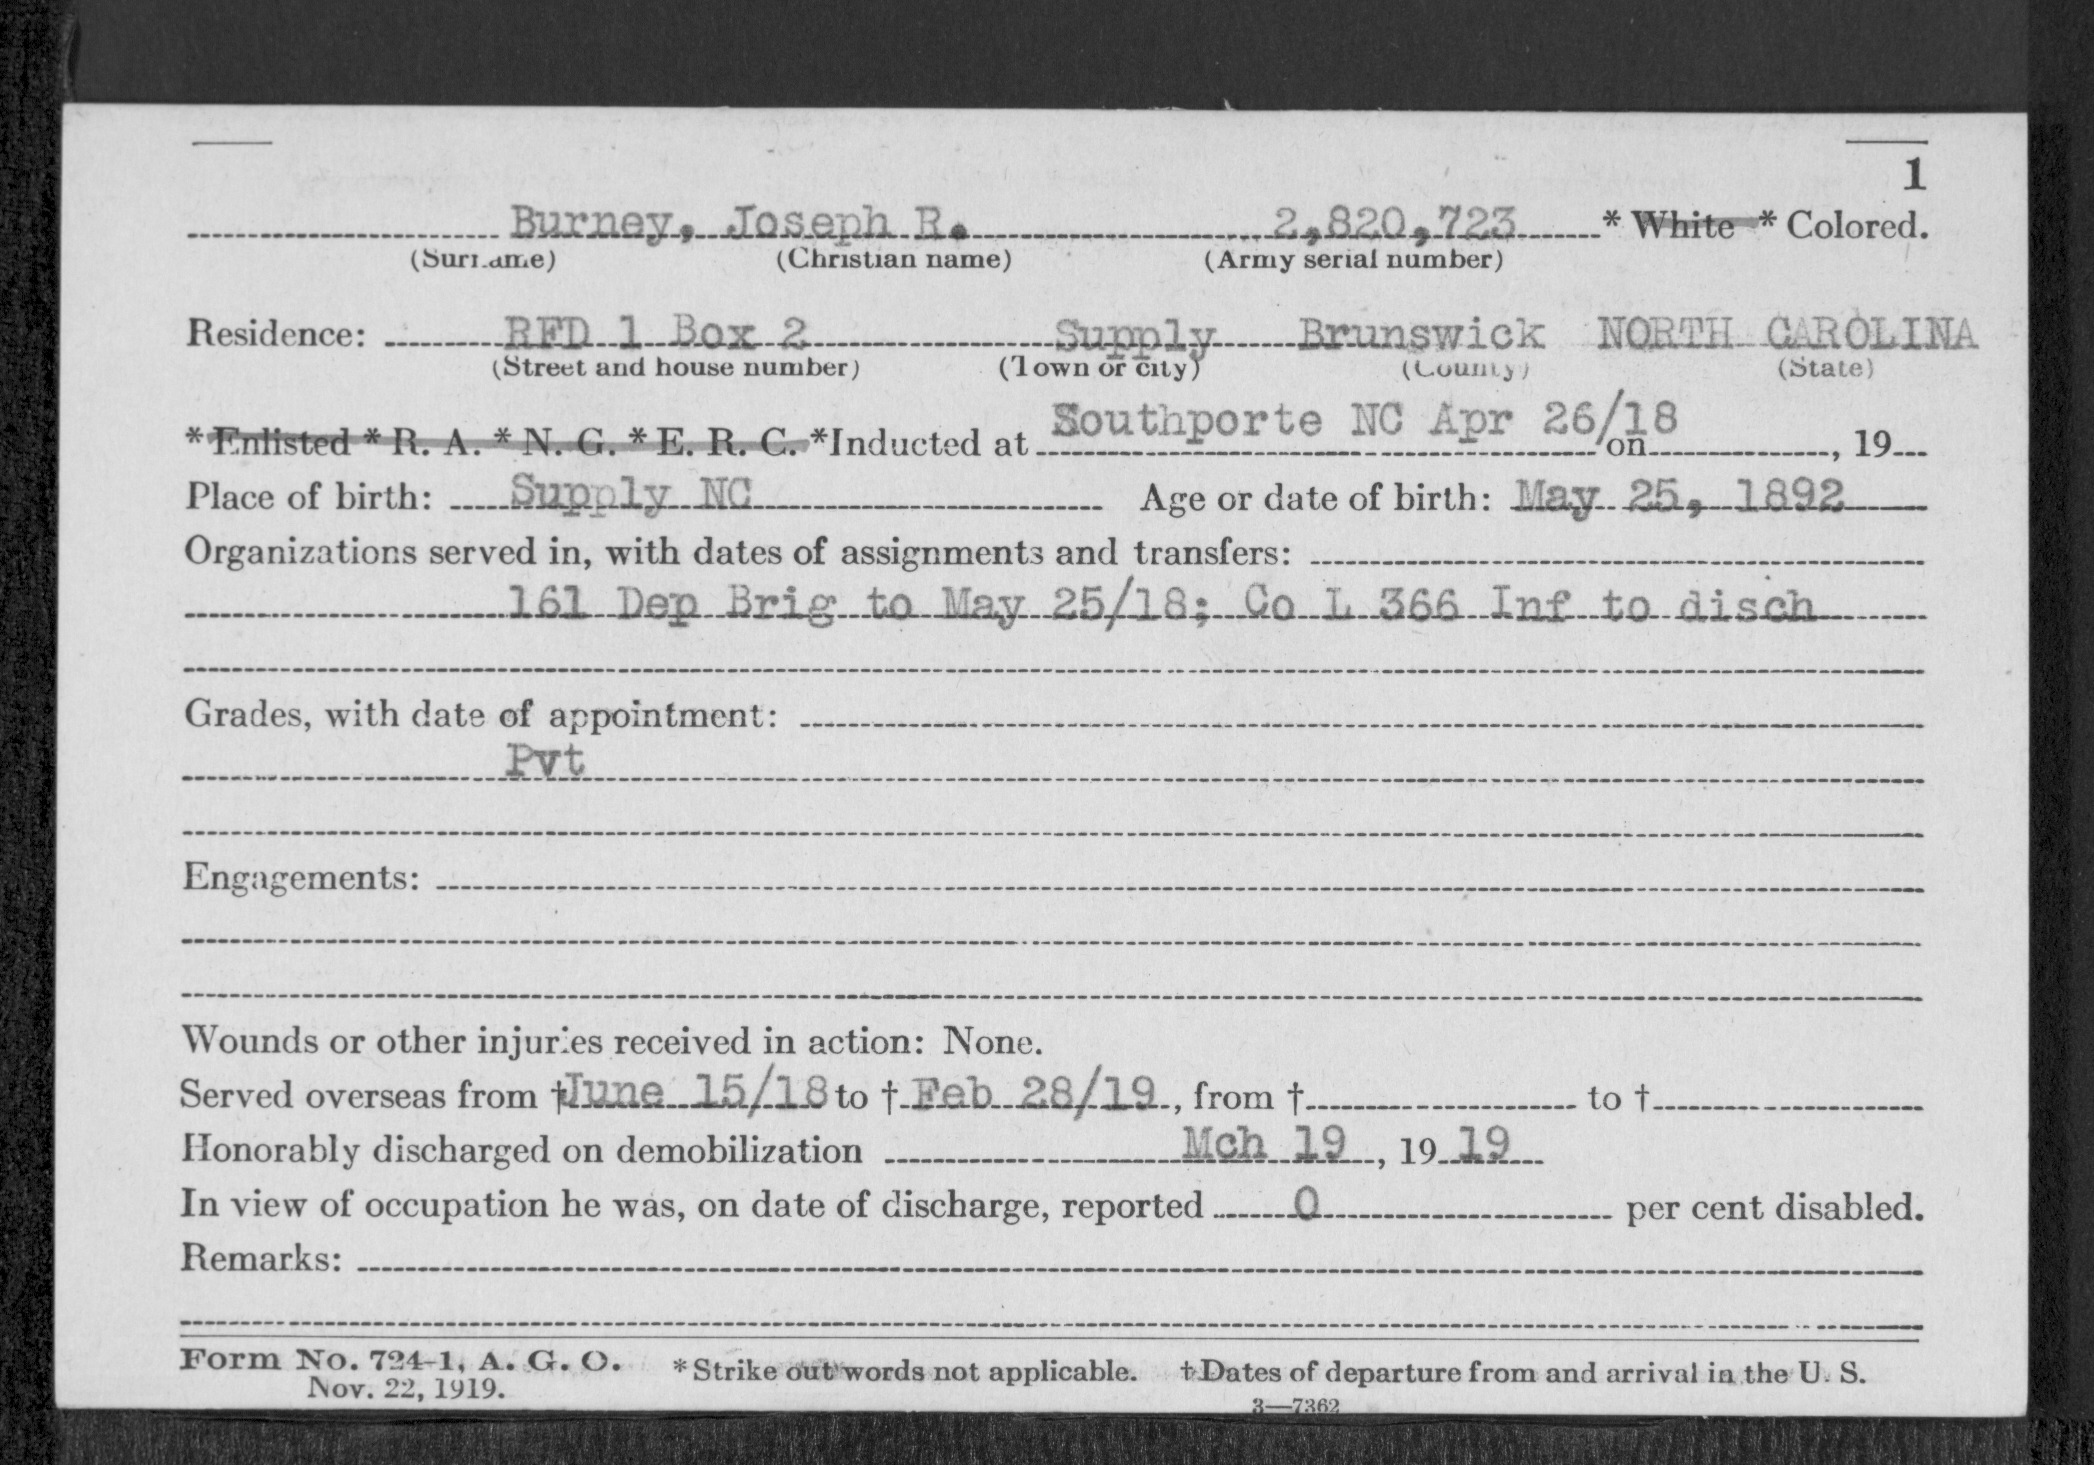 1
Burney, Joseph R. 2,820,723 * White * Colored.
(Surname) (Christian name) (Army serial number)
Residence: RFD 1 Box 2 Supply Brunswick NORTH CAROLINA
(Street and house number) (Town or city) (County) (State)
*Enlisted *R. A. *N. G. *E. R. C. *Inducted at Southporte NC Apr 26/18 on , 19
Place of birth: Supply NC Age or date of birth: May 25, 1892
Organizations served in, with dates of assignments and transfers:
161 Dep Brig to May 25/18; Co L 366 Inf to disch
Grades, with date of appointment:
Pvt
Engagements:
Wounds or other injuries received in action: None.
Served overseas from †June 15/18 to † Feb 28/19, from † to †
Honorably discharged on demobilization Mch 19, 19 19
In view of occupation he was, on date of discharge, reported 0 per cent disabled.
Remarks:
Form No. 724-1, A. G. O. *Strike out words not applicable. †Dates of departure from and arrival in the U. S.
Nov. 22, 1919.
3—7362